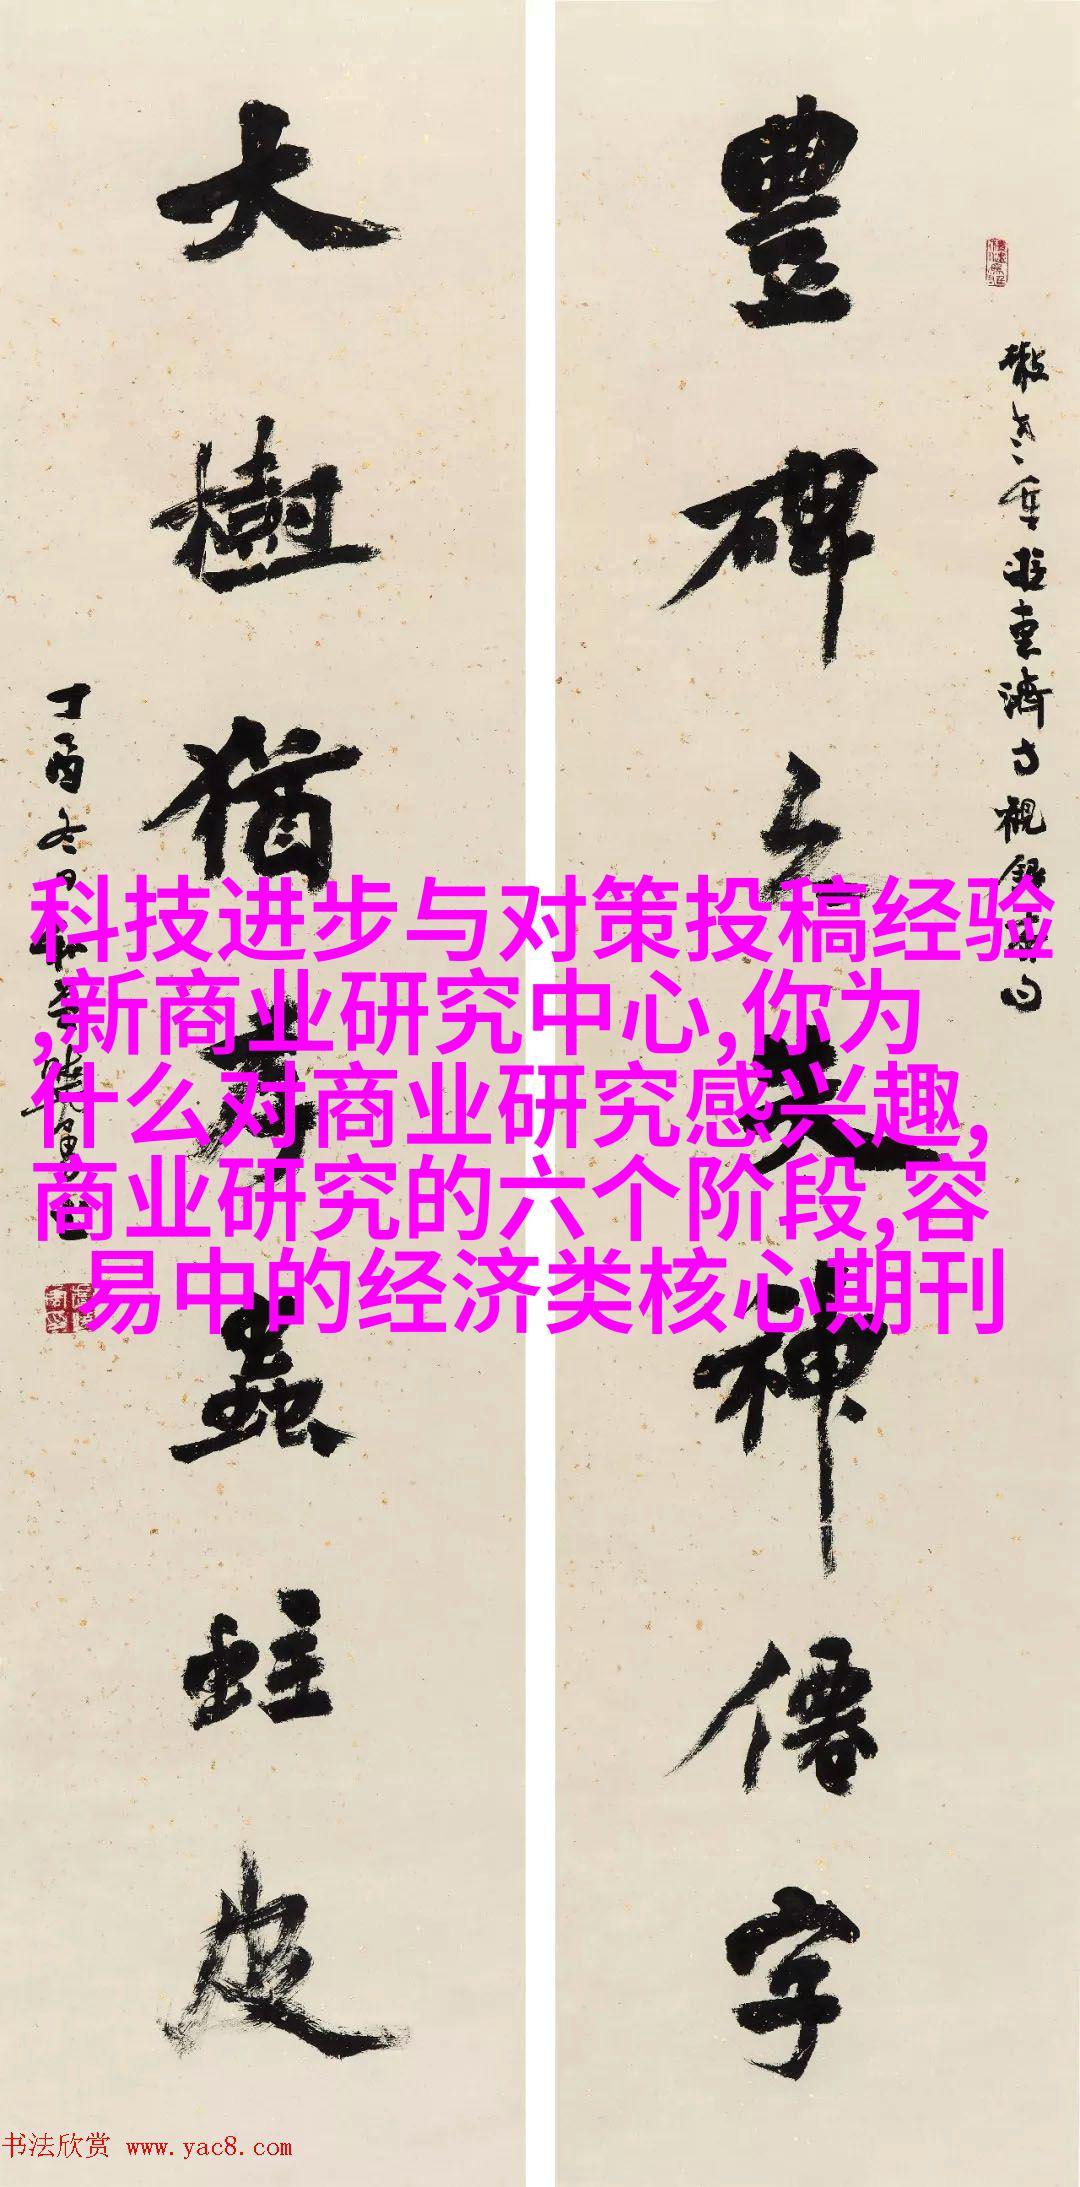 豊碑之英神僊字
大樹猶育蟲蛀皮
丁酉冬日
科技进步与对策投稿经验
,新商业研究中心,你为
什么对商业研究感兴趣,
商业研究的六个阶段,容
易中的经济类核心期刊
书法欣赏 www.yac8.com